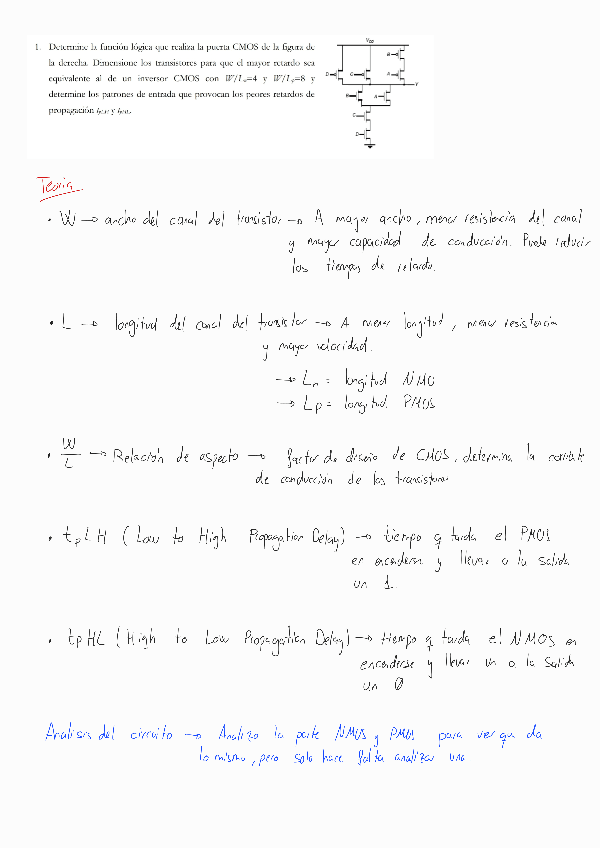 1. Determine la función lógica que realiza la puerta CMOS de la figura de
la derecha. Dimensione los transistores para que el mayor retardo sea
equivalente al de un inversor CMOS con W/Ln=4 y W/Lp=8 y
determine los patrones de entrada que provocan los peores retardos de
propagación tPLH y tPHL.
VDD
B
D
C
A
Y
B
A
C
D
Teoria
• W → ancho del canal del transistor → A mayor ancho, menor resistencia del canal
y mayor capacidad de conducción. Puede reducir
los tiempos de retardo.
• L → longitud del canal del transistor → A menor longitud, menor resistencia
y mayor velocidad.
→ Ln = longitud NMO
→ Lp = longitud PMOS
• W/L → Relación de aspecto → factor de diseño de CMOS, determina la corriente
de conducción de los transistores
• tpLH (Low to High Propagation Delay) → tiempo q tarda el PMOS
en encenderse y llevar a la salida
un 1.
• tpHL (High to Low Propagation Delay) → tiempo q tarda el NMOS en
encenderse y llevar un a la salida
un 0
Analisis del circuito → Analizo la parte NMOS y PMOS para ver qu da
lo mismo, pero solo hace falta analizar uno